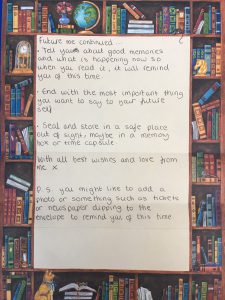 Future me continued...
• Tell you about good memories
and what is happening now so
when you read it, it will remind
you of this time.
• End with the most important thing
you want to say to your future
self
• Seal and store in a safe place
out of sight, maybe in a memory
box or time capsule
With all best wishes and love from
me x
P.S. you might like to add a
photo or something such as tickets
or newspaper clipping to the
envelope to remind you of this time